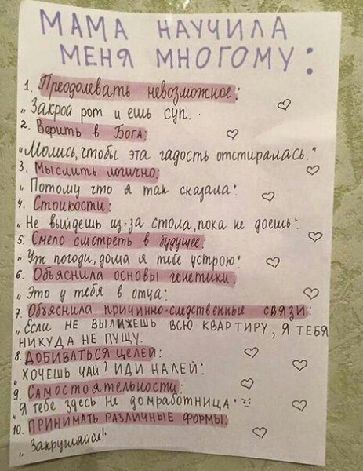 МАМА НАУЧИЛА
МЕНЯ МНОГОМУ:
1. Преодолевать невозможное:
„Закрой рот и ешь суп."
2. Верить в Бога:
„Молись, чтобы эта гадость отстиралась."
3. Мыслить логично:
„Потому что я так сказала".
4. Стойкости:
„Не выйдешь из-за стола, пока не доешь".
5. Смело смотреть в будущее.
„Уж погоди, дома я тебе устрою"
6. Объяснила основы генетики
„Это у тебя в отца".
7. Объяснила причинно-следственные связи:
„Если не вылижешь всю квартиру, я тебя
никуда не пущу.
8. ДОБИВАТЬСЯ ЦЕЛЕЙ:
„ХОЧЕШЬ ЧАЙ? ИДИ НАЛЕЙ".
9. Самостоятельности:
„Я тебе здесь не домработница".
10. ПРИНИМАТЬ РАЗЛИЧНЫЕ ФОРМЫ